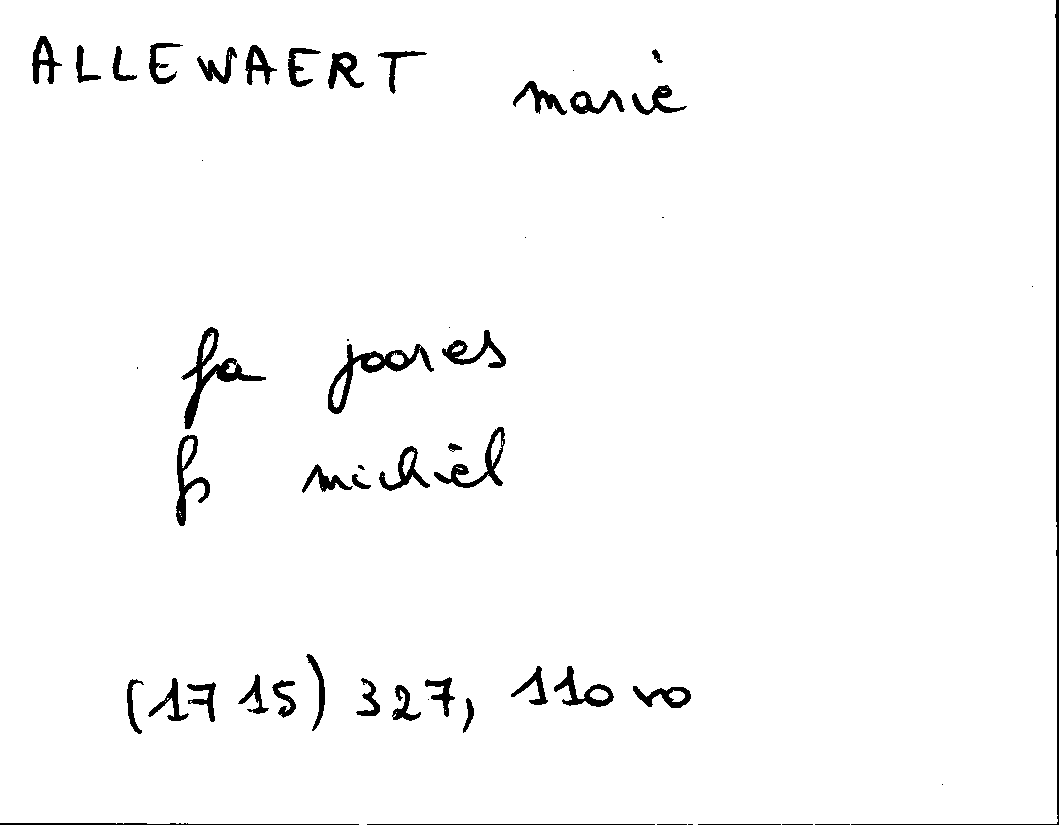 ALLEWAERT marie
fa joores
fs michiel
(1715) 327, 110 vo